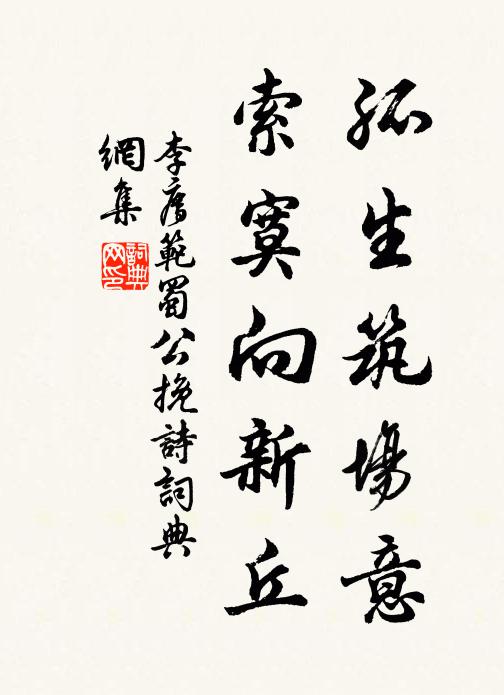 孤生筑場意
索寞向新丘
李廌范蜀公挽詩詞典
網集
詞典
网印